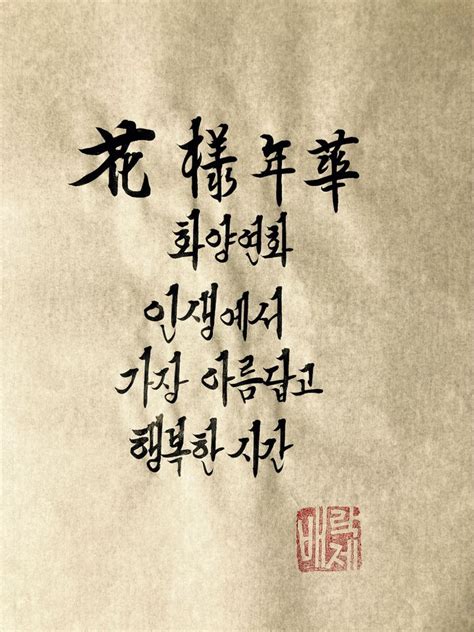 花樣年華
화양연화
인생에서
가장 아름답고
행복한 시간
배락제